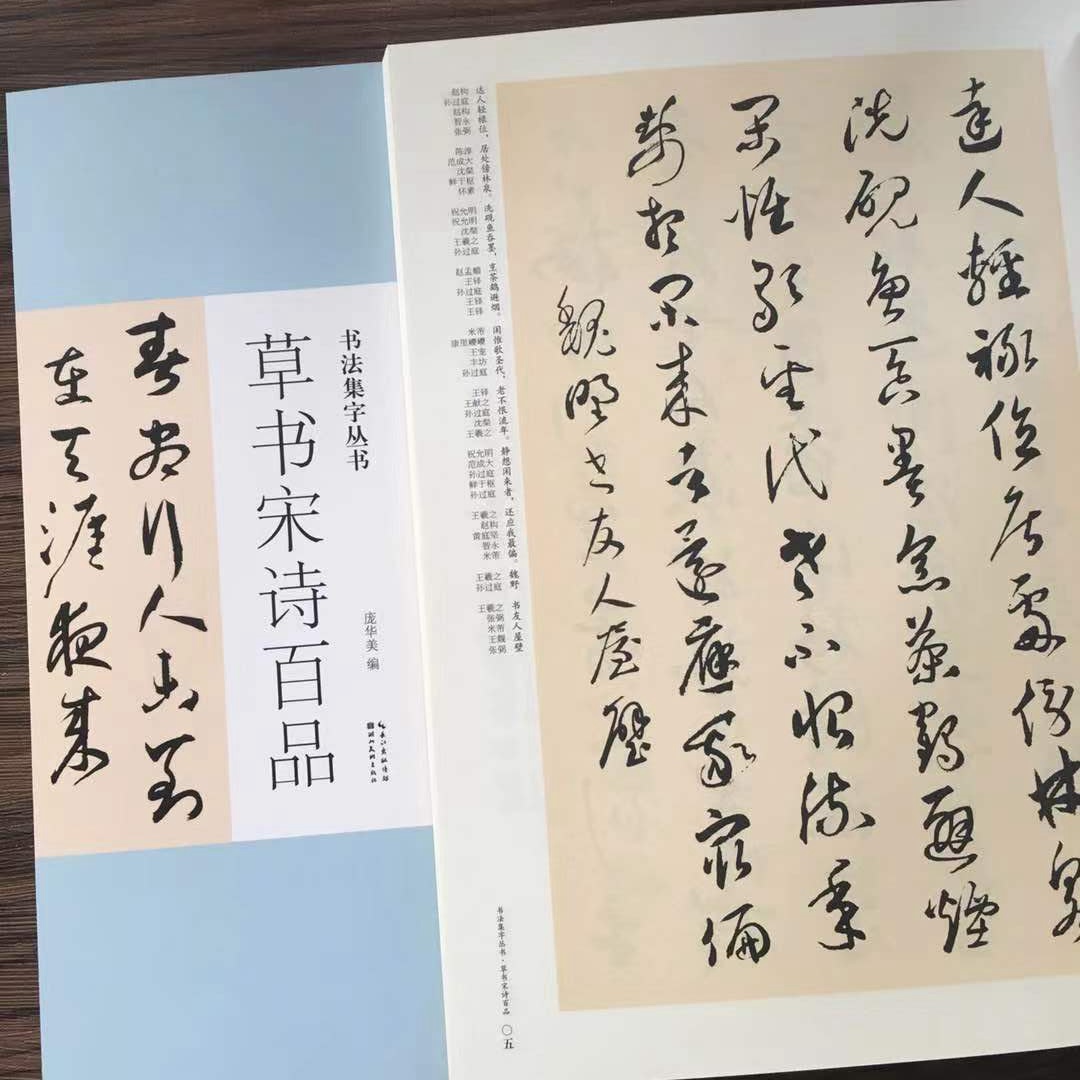 书法集字丛书
草书宋诗百品
庞华美 编
长江出版传媒
湖北美术出版社
春尽行人未到
在天涯夜来
達人輕禄位居處傍林泉
洗硯魚吞墨烹茶鶴避煙
閑惟歌聖代老不恨流年
静想閑來者還應我最偏
魏野書友人屋壁
达人轻禄位,居处傍林泉。洗砚鱼吞墨,烹茶鹤避烟。闲惟歌圣代,老不恨流年。静想闲来者,还应我最偏。 魏野 书友人屋壁
赵构
孙过庭
赵构
智永
张弼
陈淳
范成大
沈粲
鲜于枢
怀素
祝允明
祝允明
沈粲
王羲之
孙过庭
赵孟頫
王铎
孙过庭
王铎
王铎
米芾
康里巎巎
王宠
丰坊
孙过庭
王铎
王献之
孙过庭
沈粲
王羲之
祝允明
范成大
孙过庭
鲜于枢
孙过庭
王羲之
赵构
黄庭坚
智永
米芾
王羲之
孙过庭
王羲之
张弼
米芾
张弼
书法集字丛书·草书宋诗百品
〇五